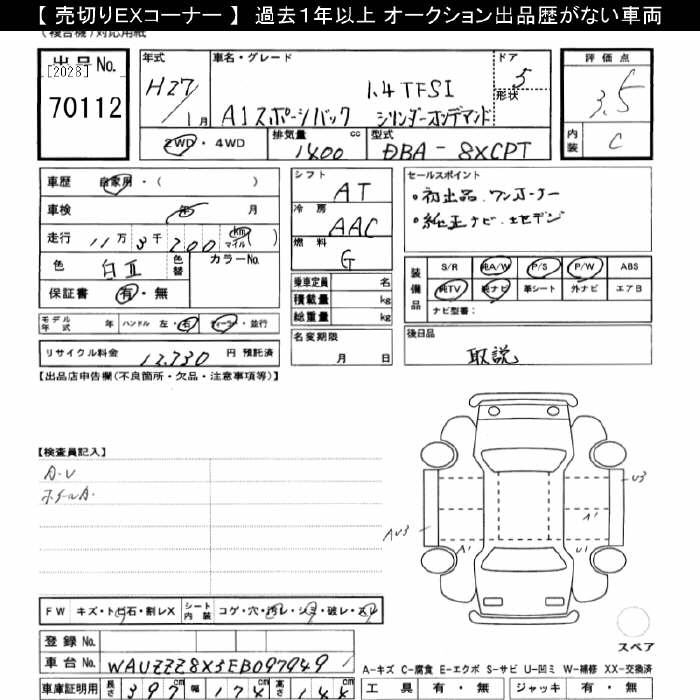 【 売切りEXコーナー 】 過去1年以上 オークション出品歴がない車両
(複合機)対応用紙
出品No.
[2028]
70112
年式
H27/1月
車名・グレード
1.4TFSI
A1スポーツバック シリンダーオンデマンド
ドア
5
形状
評価点
3.5
内装
C
2WD・4WD
排気量
1400
cc
型式
DBA-8XCPT
車歴 自家用・( )
車検 年 月
走行 11万3千200 km マイル ( )
色 白II
色替
カラーNo.
保証書 有・無
シフト AT
冷房 AAC
燃料 G
乗車定員 名
積載量 kg
総重量 kg
セールスポイント
・初出品、ワンオーナー
・純正ナビ、地デジ
装備品
S/R 純A/W P/S P/W ABS
純TV 純ナビ 革シート 外ナビ エアB
ナビ型番:
モデル年式 年 ハンドル 左・右 ディーラー・並行
名変期限
月 日
後日品
取説
リサイクル料金 12,730 円 預託済
【出品店申告欄(不良箇所・欠品・注意事項等)】
【検査員記入】
A・U
ホイールA・
U3
A1
AU3
A1
U1
FW キズ・トビ石・割レX
シート内装 コゲ・穴・汚レ・シミ・破レ・スレ
登録No.
車台No. WAUZZZ8X5FB097949
スペア
A-キズ C-腐食 E-エクボ S-サビ U-凹ミ W-補修 XX-交換済
車庫証明用 長さ 397cm 幅 174cm 高さ 144cm
工具 有・無 ジャッキ 有・無